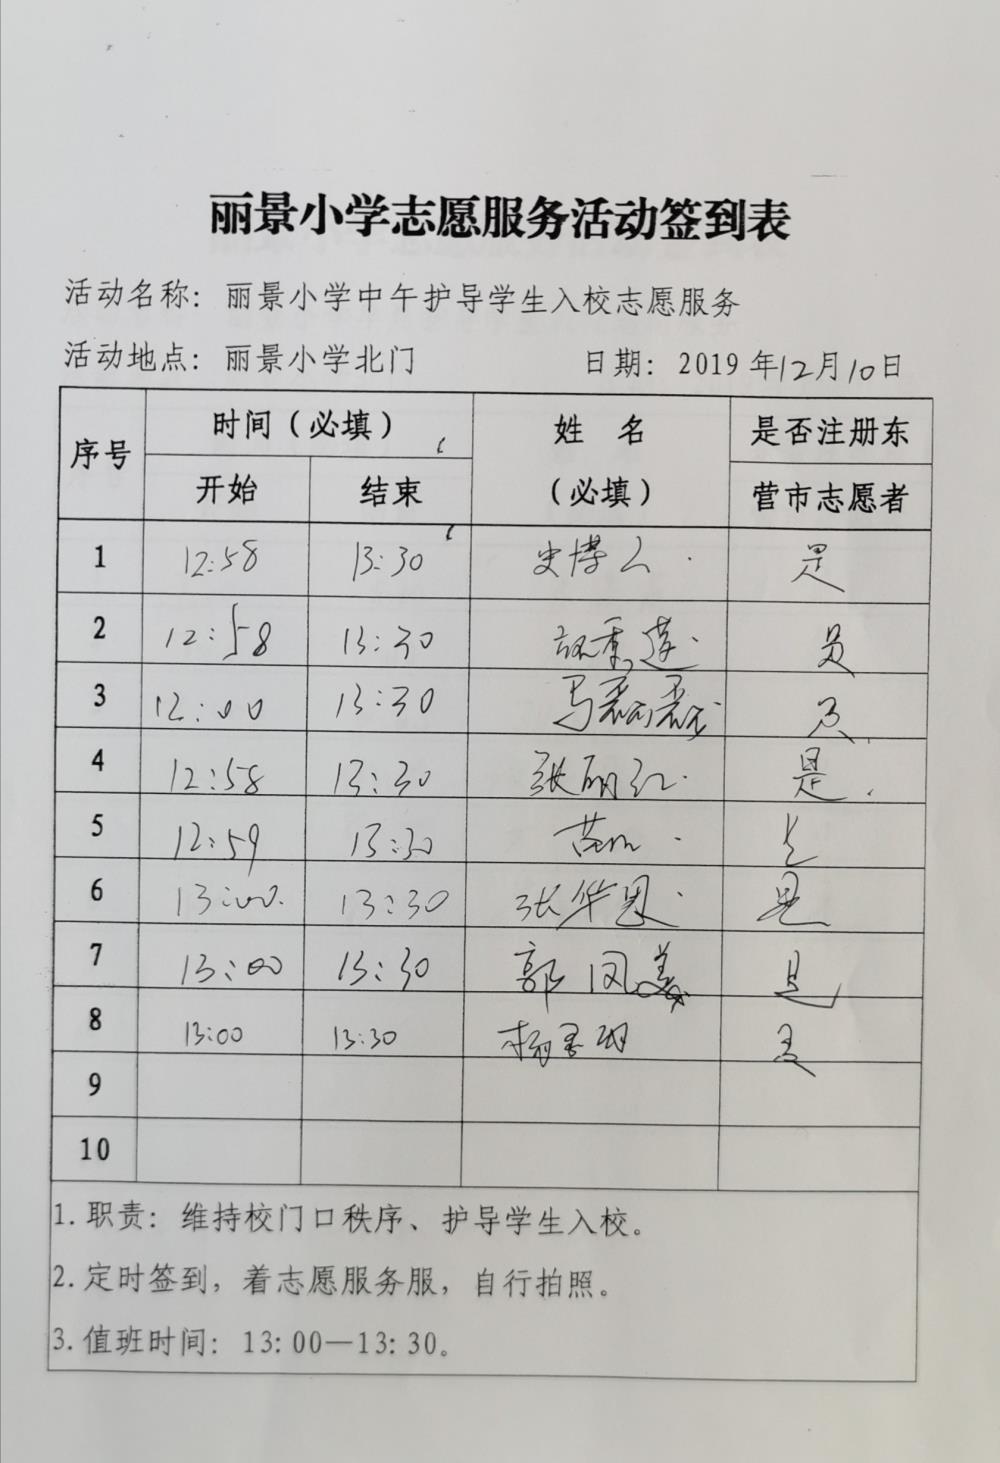 丽景小学志愿服务活动签到表
活动名称：丽景小学中午护导学生入校志愿服务
活动地点：丽景小学北门 日期：2019年12月10日
序号 时间（必填） 姓名（必填） 是否注册东营市志愿者
开始 结束
1 12:58 13:30 史博人 是
2 12:58 13:30 是
3 12:00 13:30 马 是
4 12:58 13:30 张丽红 是
5 12:59 13:30 是
6 13:00 13:30 张华恩 是
7 13:00 13:30 郭凤美 是
8 13:00 13:30 杨 是
9
10
1.职责：维持校门口秩序、护导学生入校。
2.定时签到，着志愿服务服，自行拍照。
3.值班时间：13:00—13:30。